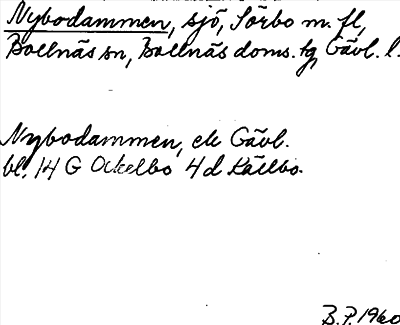 Nybodammen, sjö, Sörbo m. fl,
Bollnäs sn, Bollnäs doms. tg, Gävl. l.
Nybodammen, ek Gävl.
bl. 14 G Ockelbo 4 d Källbo.
B.P. 1960